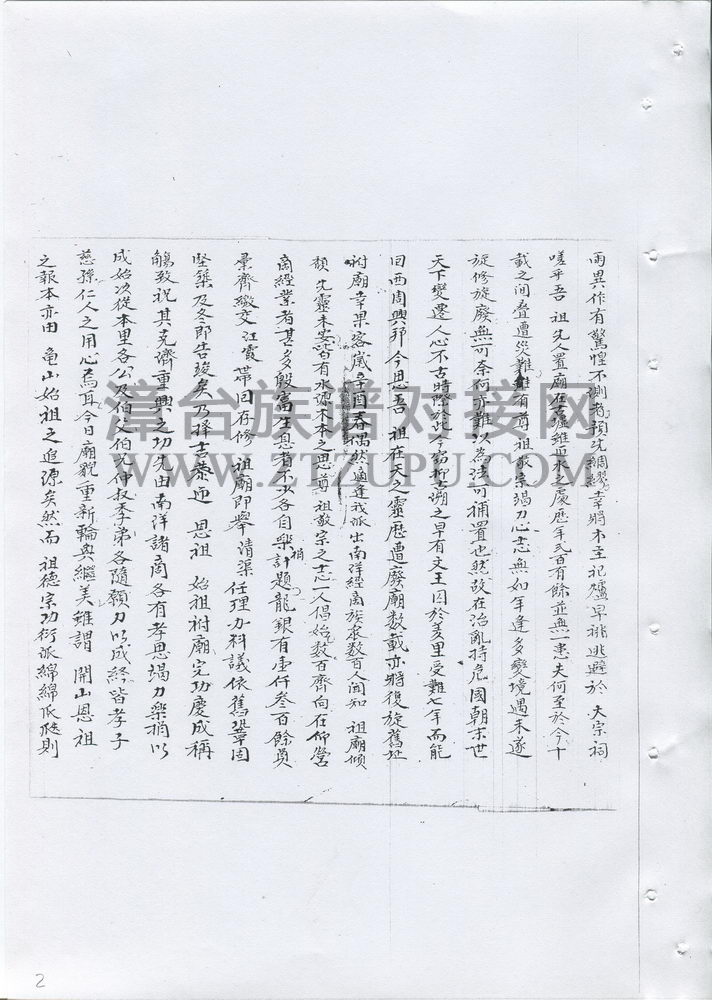 雨異作有驚惶不測者預先綢繆幸將木主祀爐早祧逃避於 大宗祠
嗟乎吾 祖先人置廟在古墟維迎水之處歷年弍百有餘並無一患夫何至於今十
載之間叠遭災難雖有尊祖敬宗竭力心志無如年逢多變境遇未遂
旋修旋廢無可奈何亦難以為法可補置也然故在治亂持危國朝末世
天下變遷人心不古時際於此今窃抑溯之早有文王囚於羑里受難七年而能
回西周興邦今思吾 祖在天之靈歷遭廢廟数載亦將復旋舊址
祔廟幸果客歲辛酉春偶然適逢我派出南洋經商族眾数百人聞知 祖廟傾
頹先靈未安皆有水源木本之思尊祖敬宗之志一人倡始数百齊向在仰營
商經業者甚多殷富生息者不少各自樂捐計題龍銀有壹仟叁百餘員
彙齊繳交江 帶回存修 祖廟即舉清渠 任理办料議依舊鞏固
堅築及冬即告竣矣乃擇吉恭迎 恩祖 始祖祔廟完功慶成稱
觴致祝其克濟重興之功先由南洋諸商各有孝思竭力樂捐以
成始次從本里各公及伯父伯兄仲叔季弟各隨顏力以成終皆孝子
慈孫仁人之用心焉耳今日廟貌重新輪奐繼美雖謂 開山恩祖
之報本亦由 龜山始祖之追源矣然而 祖德宗功衍派綿綿瓜瓞則
漳台族谱对接网
WWW.ZTZUPU.COM
2